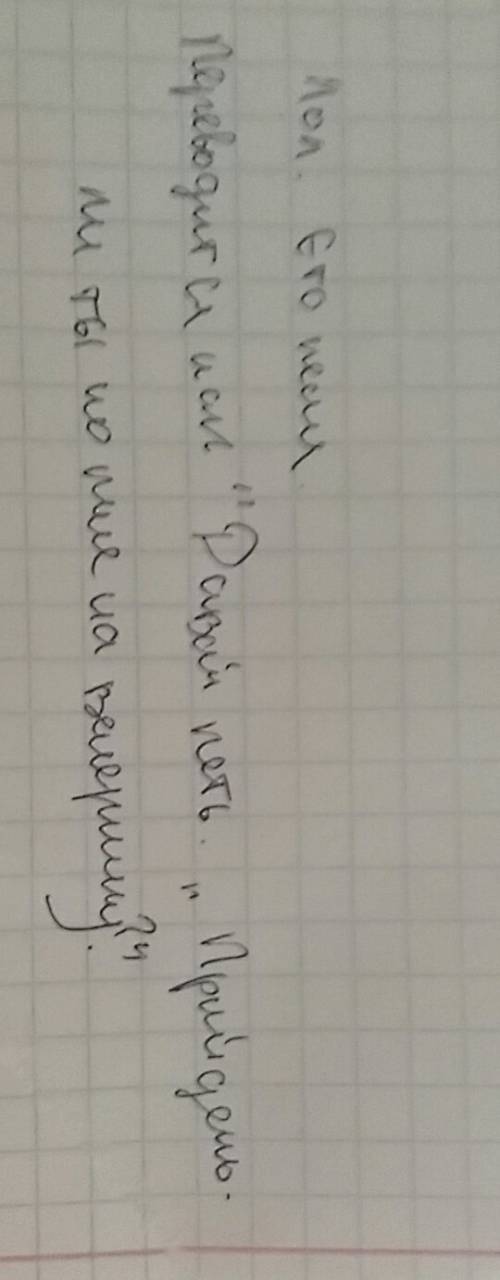 Лол. Это песня.
Переводится как "Давай петь. "Прийдешь
ли ты ко мне на вечеринку?"